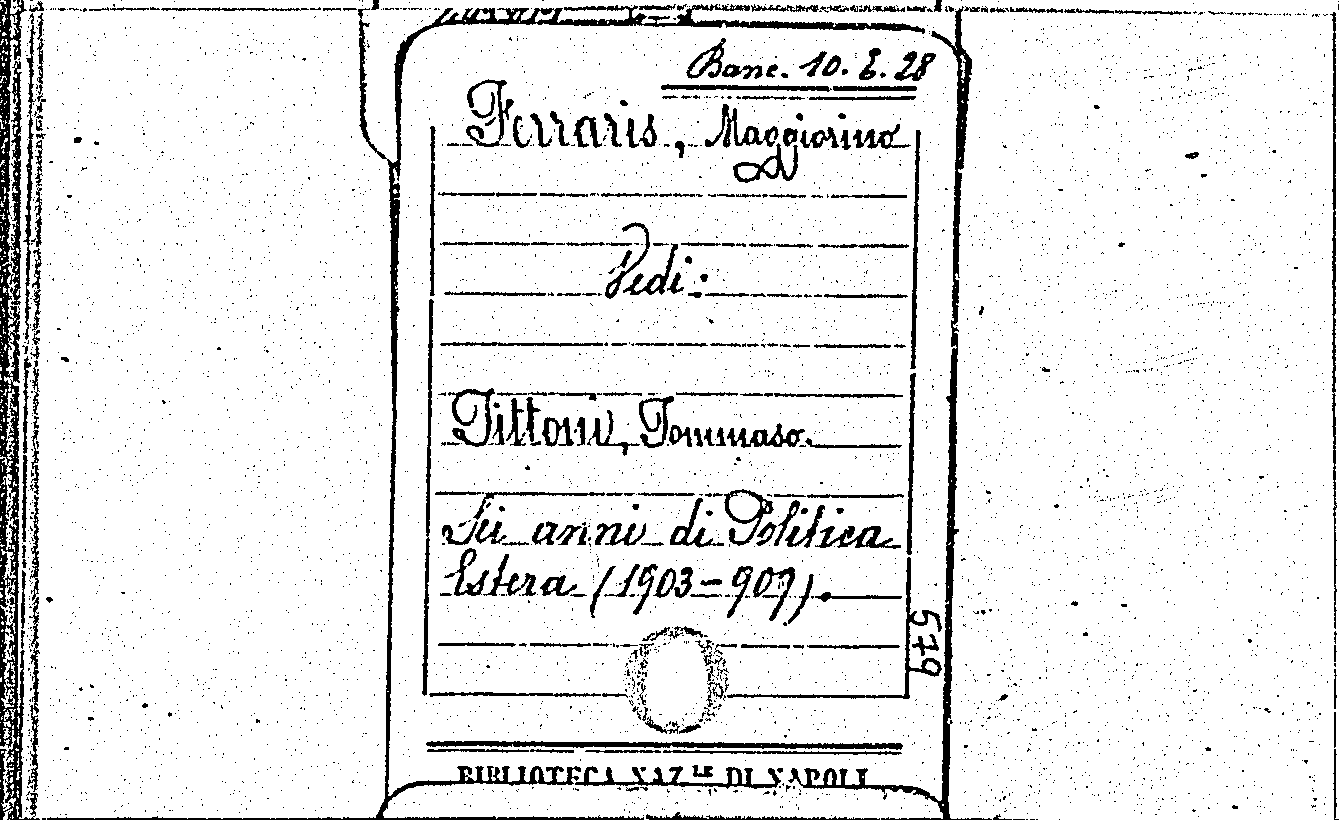 Banc. 10. E. 28
Ferraris, Maggiorino
Vedi:
Tittoni, Tommaso.
Sei anni di Politica
Estera (1903-909).
579
BIBLIOTECA NAZ.LE DI NAPOLI